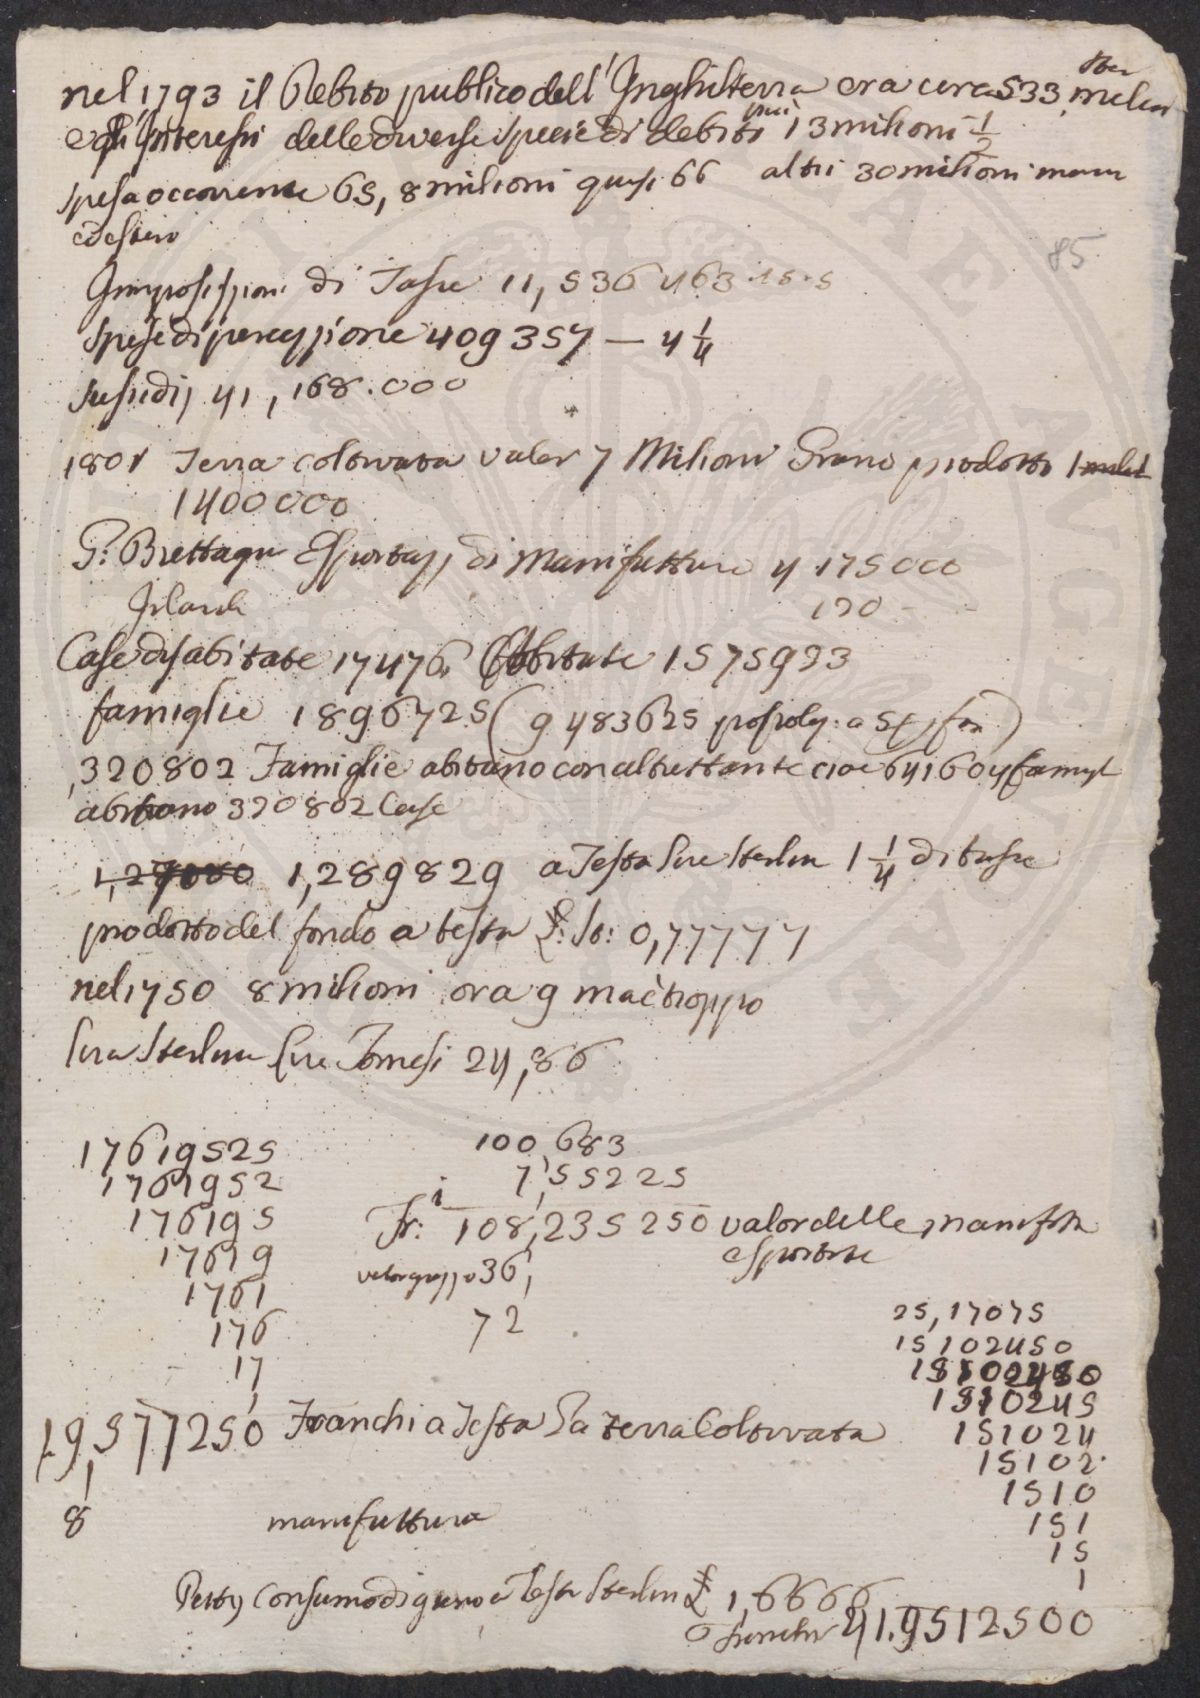 nel 1793 il Debito publico dell'Inghilterra era circa 533 milioni ster
e gli Interessi delle diverse specie di debiti più 13 milioni 1/2
spesa occorrente 65, 8 milioni quasi 66 altri 30 milioni
85
Imposizioni di Tasse 11, 536 463 . 15 . 5
spese di percezzione 409 357 — 4 1/4
sussidij 41, 168.000
1801 Terra coltivata valor 7 Milioni Grano prodotto 1
1400000
G: Brettagn Esportaz, di Manifatture 4 . 175000
Irlanda 120
Case disabitate 17476 Abitate 1575923
famiglie 1896725 (9483625 popolaz: a 5 p fam)
320802 Famiglie abitano con altrettante cioe 641604 famigl
abitano 320802 Case
1,289829 a Testa lire sterlin 1 1/4 di tasse
prodotto del fondo a testa L: St: 0,77777
nel 1750 8 milioni ora 9 ma è troppo
lira sterlina lire Tornesi 24,86
17619525 100,683
1761952 7,55225
176195 Fr: 108,235250 valor delle manifatt
17619 esportate
1761 valor grezzo 36,
176 72
17
1
19,577250 Franchi a Testa La terra Coltivata
8 manifattura
25,17075
15102450
15102450
1510245
151024
15102
1510
151
15
1
Petty Consumo di grano a Testa Sterlin L 1,6666
o franchi 41.9512500